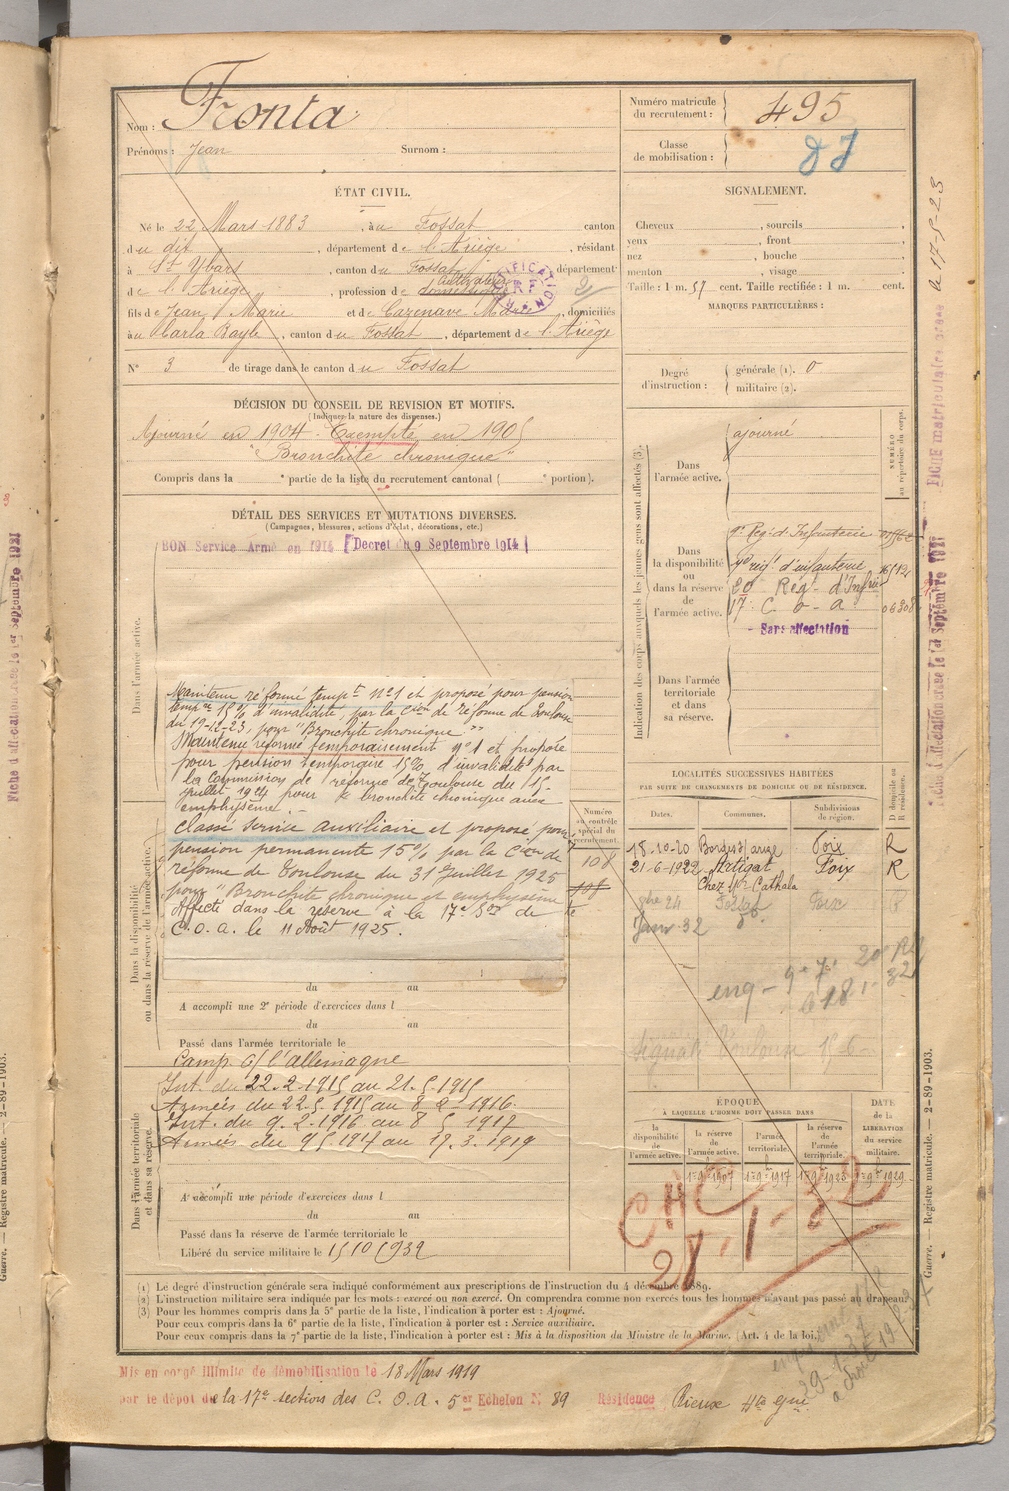 Nom : Fronta
Prénoms : Jean Surnom :
Numéro matricule du recrutement : 495
Classe de mobilisation :
ÉTAT CIVIL.
Né le 22 Mars 1883, à u Fossat canton
d u dit, département de l'Ariège, résidant
à St Ybars, canton du Fossat département
de l'Ariège, profession de cultivateur
fils de Jean Marie et de Cazenave, domiciliés
à u Carla Bayle, canton du Fossat, département de l'Ariège
N° 3 de tirage dans le canton d u Fossat
SIGNALEMENT.
Cheveux , sourcils ,
yeux , front ,
nez , bouche ,
menton , visage
Taille : 1 m. 57 cent. Taille rectifiée : 1 m. cent.
MARQUES PARTICULIÈRES :
Degré d'instruction : générale (1). 0
militaire (2).
DÉCISION DU CONSEIL DE REVISION ET MOTIFS.
(Indiquer la nature des dispenses.)
Ajourné en 1904 - Exempté en 1905
"Bronchite chronique"
Compris dans la e partie de la liste du recrutement cantonal ( e portion).
DÉTAIL DES SERVICES ET MUTATIONS DIVERSES.
(Campagnes, blessures, actions d'éclat, décorations, etc.)
BON Service Armé en 1914 [Decret du 9 Septembre 1914]
Dans l'armée active.
Maintenu réformé tempt n°1 et proposé pour pension
tempre 15% d'invalidité, par la Cion de réforme de Toulouse
du 19-12-23, pour "Bronchite chronique"
Maintenu réformé temporairement n°1 et proposé
pour pension temporaire 15% d'invalidité par
la Commission de réforme de Toulouse du 15
juillet 1924 pour "bronchite chronique avec
emphysème".
Classé service auxiliaire et proposé pour
pension permanente 15% par la Cion de
réforme de Toulouse du 31 Juillet 1925
pour "Bronchite chronique et emphysème
Affecté dans la réserve à la 17e Son de
C.O.A. le 11 Août 1925.
Dans la disponibilité ou dans la réserve de l'armée active.
du au
A accompli une 2e période d'exercices dans l
du au
Passé dans l'armée territoriale le
Camp. c/ l'allemagne
Int. du 22.2.1915 au 21.5.1915
Armées du 22.5.1915 au 8-2-1916
Int. du 9.2.1916 au 8 5 1917
Armées du 9 5 1917 au 17.3.1919
Dans l'armée territoriale et dans sa réserve.
A accompli une période d'exercices dans l
du au
Passé dans la réserve de l'armée territoriale le
Libéré du service militaire le 15 10 1932
Indication des corps auxquels les jeunes gens sont affectés (3).
NUMÉRO au répertoire du corps.
Dans l'armée active. ajourné
Dans la disponibilité ou dans la réserve de l'armée active.
9e Reg. d'Infanterie
regt d'infanterie
20 Regt d'Infrie
17e C.O.A
Sans affectation
Dans l'armée territoriale et dans sa réserve.
LOCALITÉS SUCCESSIVES HABITÉES
PAR SUITE DE CHANGEMENTS DE DOMICILE OU DE RÉSIDENCE.
D domicile ou R résidence.
Numéro au contrôle spécial du recrutement.
Dates. Communes. Subdivisions de région.
108
18-10-20 Foix R
21-6-1922 Artigat Foix R
Chez Mr Cathala
Janv. 32
ÉPOQUE
À LAQUELLE L'HOMME DOIT PASSER DANS
DATE de la LIBÉRATION du service militaire.
la disponibilité de l'armée active. la réserve de l'armée active. l'armée territoriale. la réserve de l'armée territoriale.
28-1-32
(1) Le degré d'instruction générale sera indiqué conformément aux prescriptions de l'instruction du 4 décembre 1889.
(2) L'instruction militaire sera indiquée par les mots : exercé ou non exercé. On comprendra comme non exercés tous les hommes n'ayant pas passé au drapeau.
(3) Pour les hommes compris dans la 5e partie de la liste, l'indication à porter est : Ajourné.
Pour ceux compris dans la 6e partie de la liste, l'indication à porter est : Service auxiliaire.
Pour ceux compris dans la 7e partie de la liste, l'indication à porter est : Mis à la disposition du Ministre de la Marine. (Art. 4 de la loi.)
Mis en congé illimité de démobilisation le 18 Mars 1919
par le dépôt de la 17e section des C.O.A. 5er Echelon N° 89 Résidence Rieux Hte Gne
FICHE matriculaire créée le 17-5-23
Fiche d'affectation créée le 1er Septembre 1921
Guerre. — Registre matricule. — 2-89-1903.